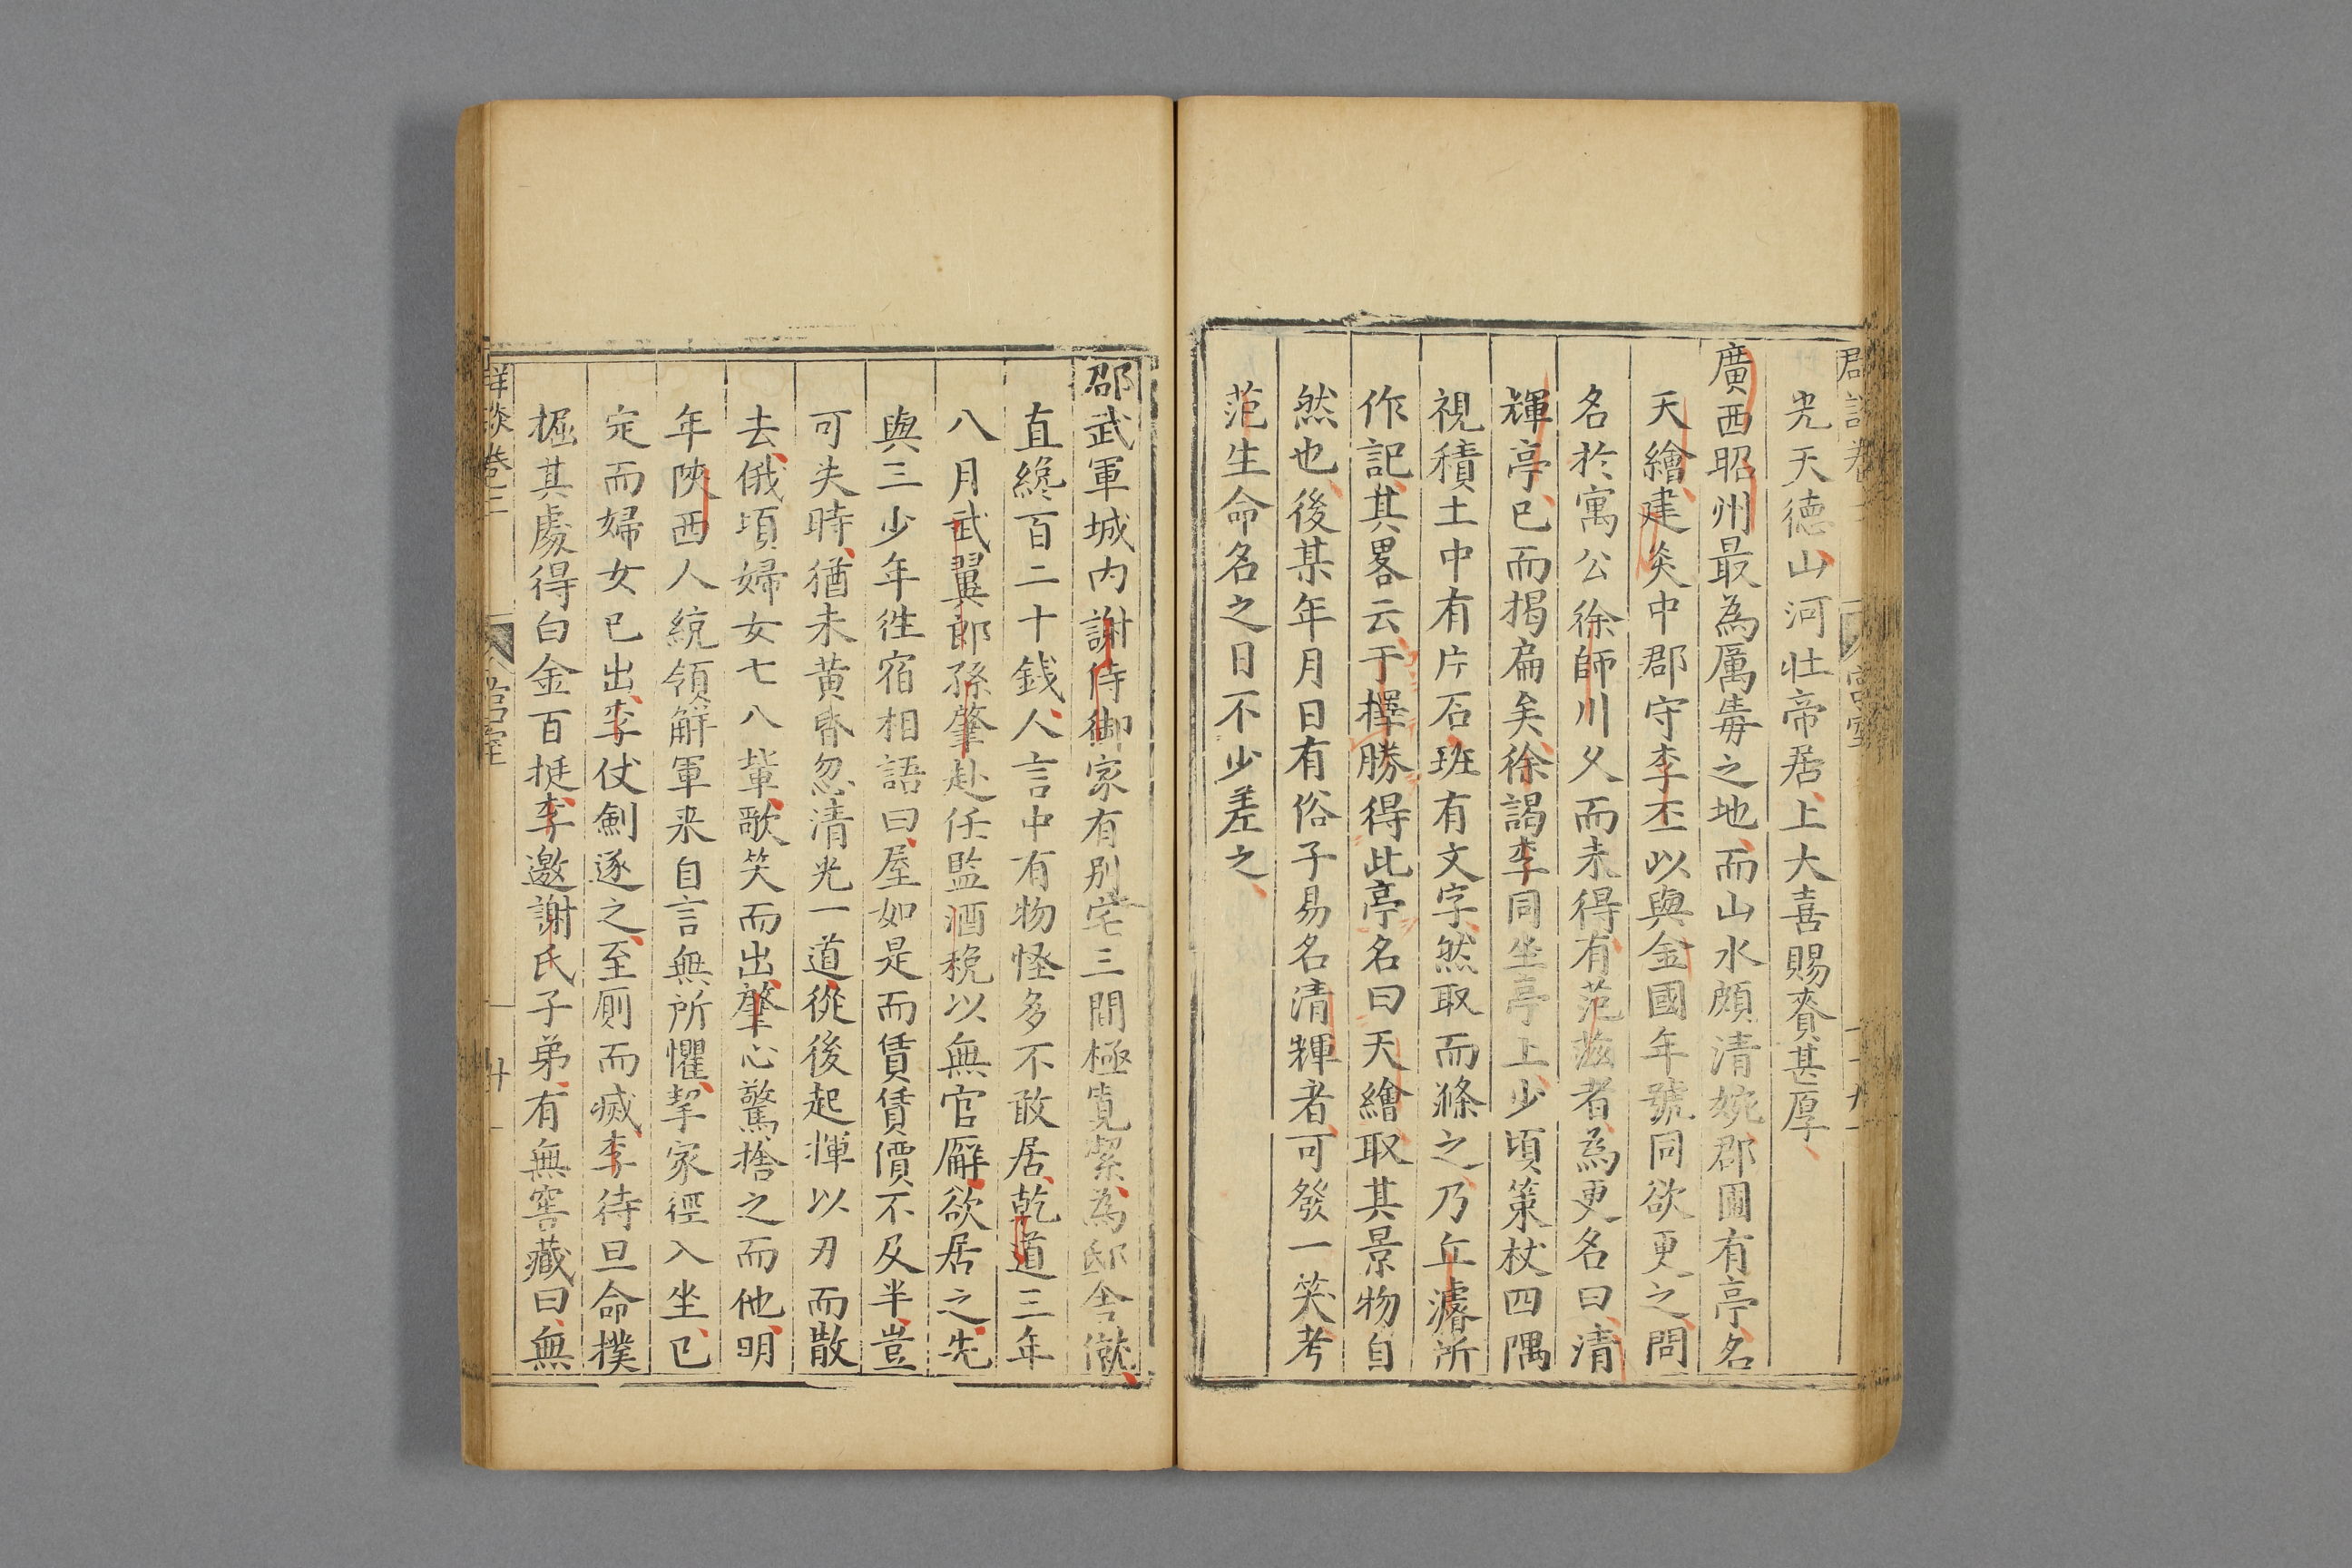 光天德山河壯帝居上大喜賜賚甚厚
廣西昭州最為厲毒之地而山水頗清婉郡圃有亭名
天繪建炎中郡守李丕以與金國年號同欲更之問
名於寓公徐師川久而未得有范滋者為更名曰清
輝亭已而揭扁矣徐謁李同坐亭上少頃策杖四隅
視積土中有片石班有文字然取而滌之乃丘濬所
作記其畧云于擇勝得此亭名曰天繪取其景物自
然也後某年月日有俗子易名清輝者可發一笑考
范生命名之日不少差之
邵武軍城內謝侍御家有別宅三間極寬潔為邸舍僦
直纔百二十錢人言中有物怪多不敢居乾道三年
八月武翼郎孫肇赴任監酒稅以無官廨欲居之先
與三少年徃宿相語曰屋如是而賃賃價不及半豈
可失時猶未黃昏忽清光一道從後起揮以刃而散
去俄頃婦女七八輩歌笑而出肇心驚捨之而他明
年陝西人統領解軍来自言無所懼挈家徑入坐已
定而婦女已出李仗劍逐之至厠而滅李待旦命撲
掘其處得白金百挺李邀謝氏子弟有無窖藏曰無
群談卷三
宮室
廿